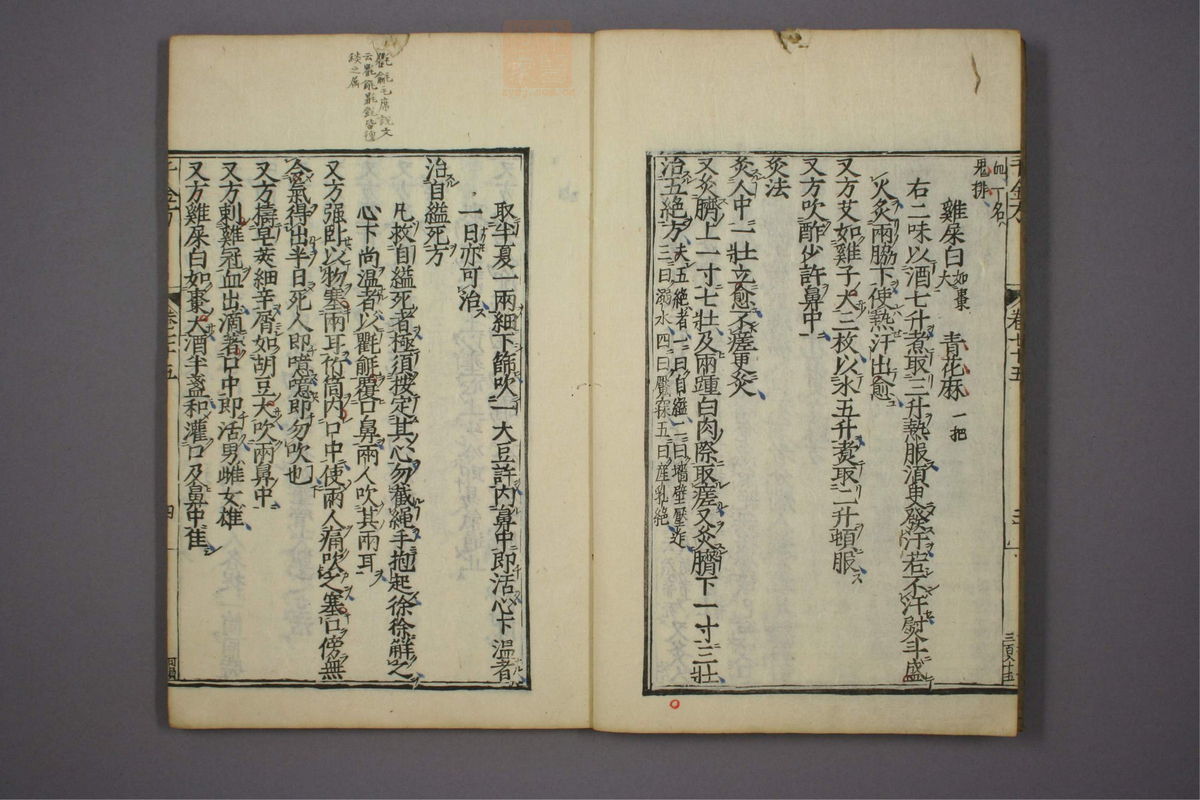 血一名
鬼排
雞屎白如棗大 青花麻一把
右二味以酒七升煮取三升熱服須臾發汗若不汗熨斗盛
火灸兩脇下使熱汗出愈
又方艾如雞子大三枚以水五升煮取二升頓服
又方吹酢少許鼻中
灸法
灸人中一壯立愈不瘥更灸
又灸臍上一寸七壯及兩踵白肉際取瘥又灸臍下一寸三壯
治五絕方夫五絕者一曰自縊二曰墻壁壓迮
三曰溺水四曰魘寐五曰產乳絕
取半夏一兩細下篩吹一大豆許內鼻中即活心下温者
一日亦可治
治自縊死方
凡救自縊死者極須按定其心勿截繩手抱起徐徐解之
心下尚温者以氍毹覆口鼻兩人吹其兩耳
又方强臥以物塞兩耳竹筒內口中使兩人痛吹之塞口傍無
令氣得出半日死人即噫噫即勿吹也
又方擣皁莢細辛屑如胡豆大吹兩鼻中
又方刺雞冠血出滴著口中即活男雌女雄
又方雞屎白如棗大酒半盞和灌口及鼻中佳
千金方 卷二十五 四
氍毹毛席說文
云氍毹皆氊
緂之屬